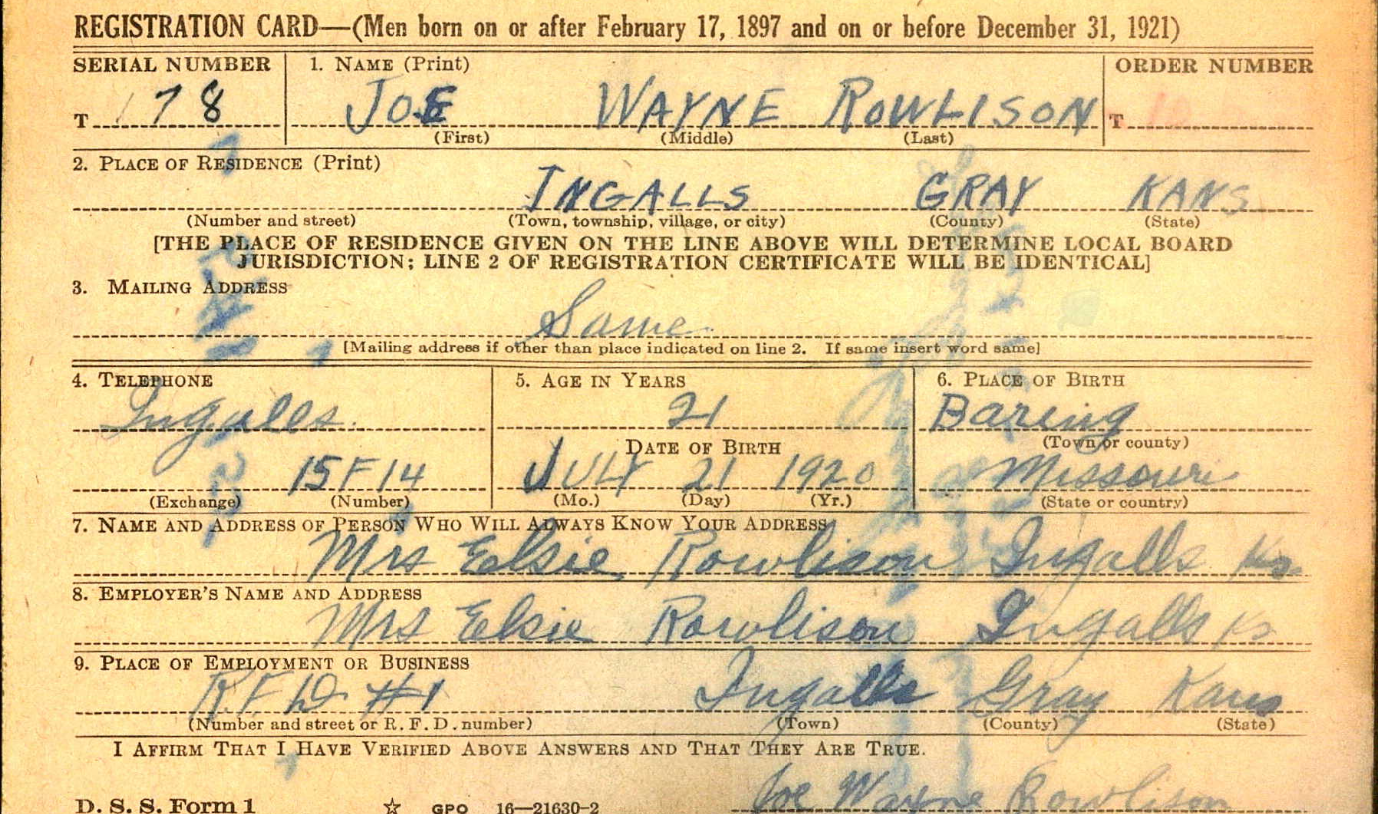 REGISTRATION CARD—(Men born on or after February 17, 1897 and on or before December 31, 1921)
SERIAL NUMBER 1. NAME (Print) ORDER NUMBER
T 178 JOE WAYNE ROWLISON T
(First) (Middle) (Last)
2. PLACE OF RESIDENCE (Print)
INGALLS GRAY KANS
(Number and street) (Town, township, village, or city) (County) (State)
[THE PLACE OF RESIDENCE GIVEN ON THE LINE ABOVE WILL DETERMINE LOCAL BOARD
JURISDICTION; LINE 2 OF REGISTRATION CERTIFICATE WILL BE IDENTICAL]
3. MAILING ADDRESS
Same
[Mailing address if other than place indicated on line 2. If same insert word same]
4. TELEPHONE 5. AGE IN YEARS 6. PLACE OF BIRTH
Ingalls. 21 Baring
DATE OF BIRTH (Town or county)
15F14 JULY 21 1920 Missouri
(Exchange) (Number) (Mo.) (Day) (Yr.) (State or country)
7. NAME AND ADDRESS OF PERSON WHO WILL ALWAYS KNOW YOUR ADDRESS
Mrs Elsie Rowlison Ingalls Ks
8. EMPLOYER'S NAME AND ADDRESS
Mrs Elsie Rowlison Ingalls Ks
9. PLACE OF EMPLOYMENT OR BUSINESS
R.F.D. #1 Ingalls Gray Kans
(Number and street or R. F. D. number) (Town) (County) (State)
I AFFIRM THAT I HAVE VERIFIED ABOVE ANSWERS AND THAT THEY ARE TRUE.
D. S. S. Form 1 GPO 16—21630-2 Joe Wayne Rowlison